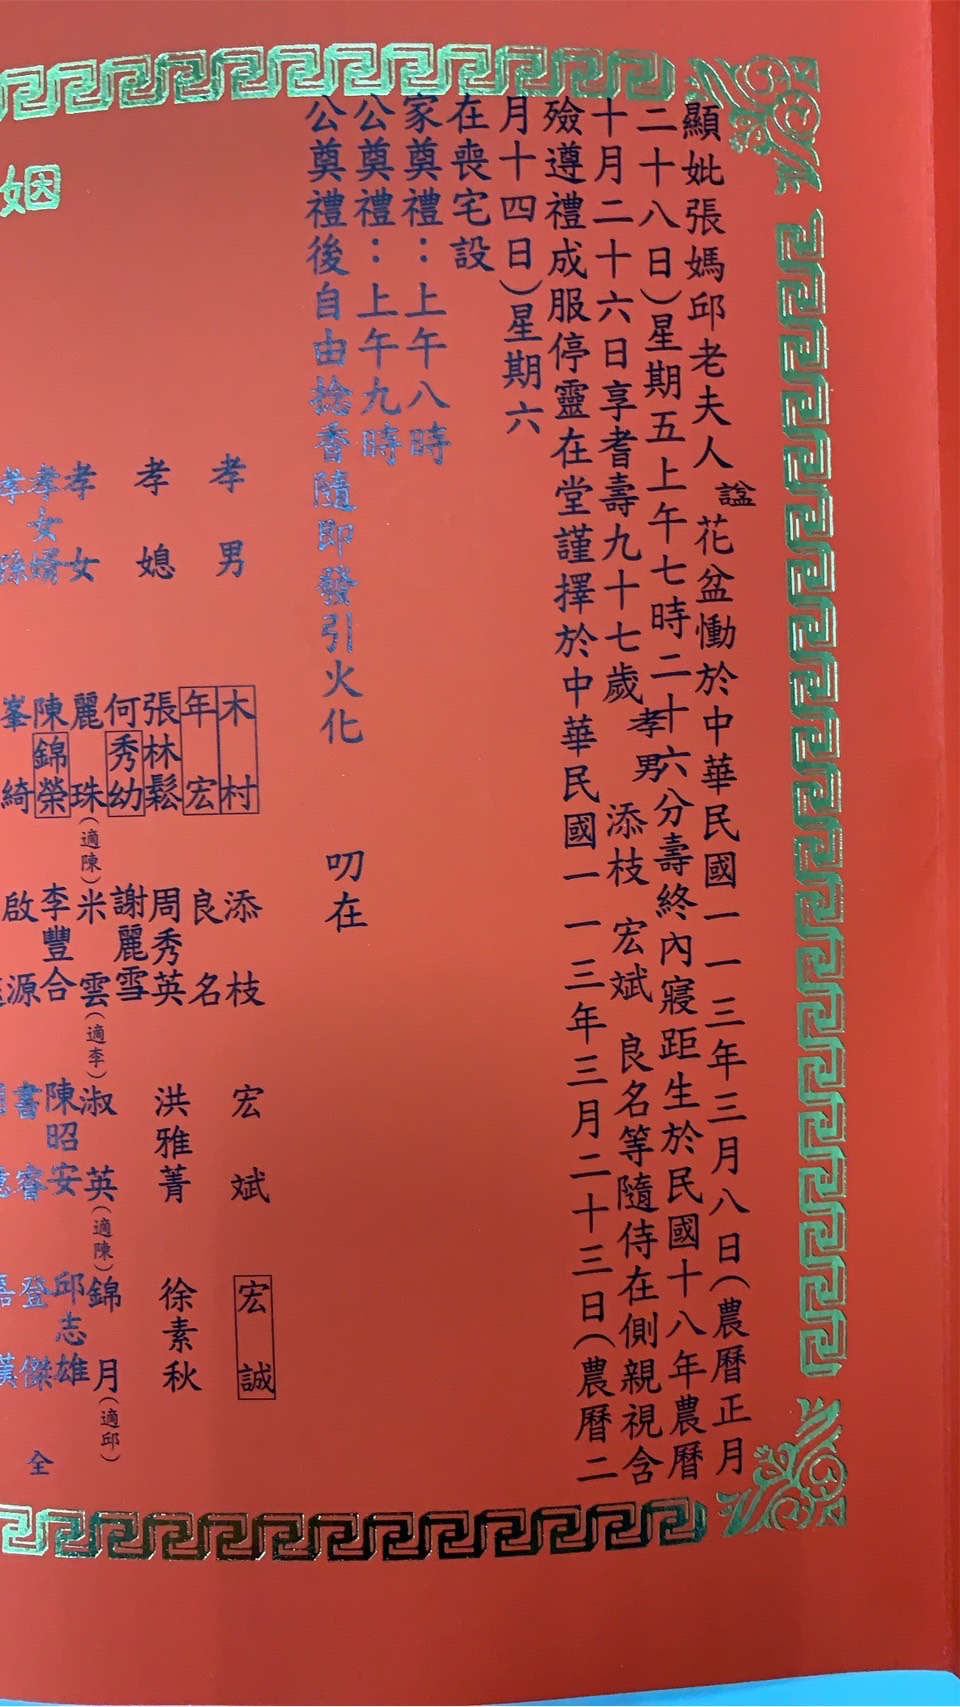 顯妣張媽邱老夫人諡花盆慟於中華民國一一三年三月八日(農曆正月
二十八日)星期五上午七時二十六分壽終內寢距生於民國十八年農曆
十月二十六日享耆壽九十七歲孝男添枝 宏斌 良名等隨侍在側親視含
殮遵禮成服停靈在堂謹擇於中華民國一一三年三月二十三日(農曆二
月十四日)星期六
在喪宅設
家奠禮：上午八時
公奠禮：上午九時
公奠禮後自由捻香隨即發引火化 叨在
孝男 木村 添枝 宏斌 宏誠
年宏 良名
孝媳 張林鬆 周秀英 洪雅菁 徐素秋
何秀幼 謝麗雪
孝女 麗珠(適陳) 米雲(適李) 淑英(適陳) 錦月(適邱)
孝女婿 陳錦榮 李豐合 陳昭安 邱志雄
孝孫 峯綺 啟源 書睿 登傑 全
姻